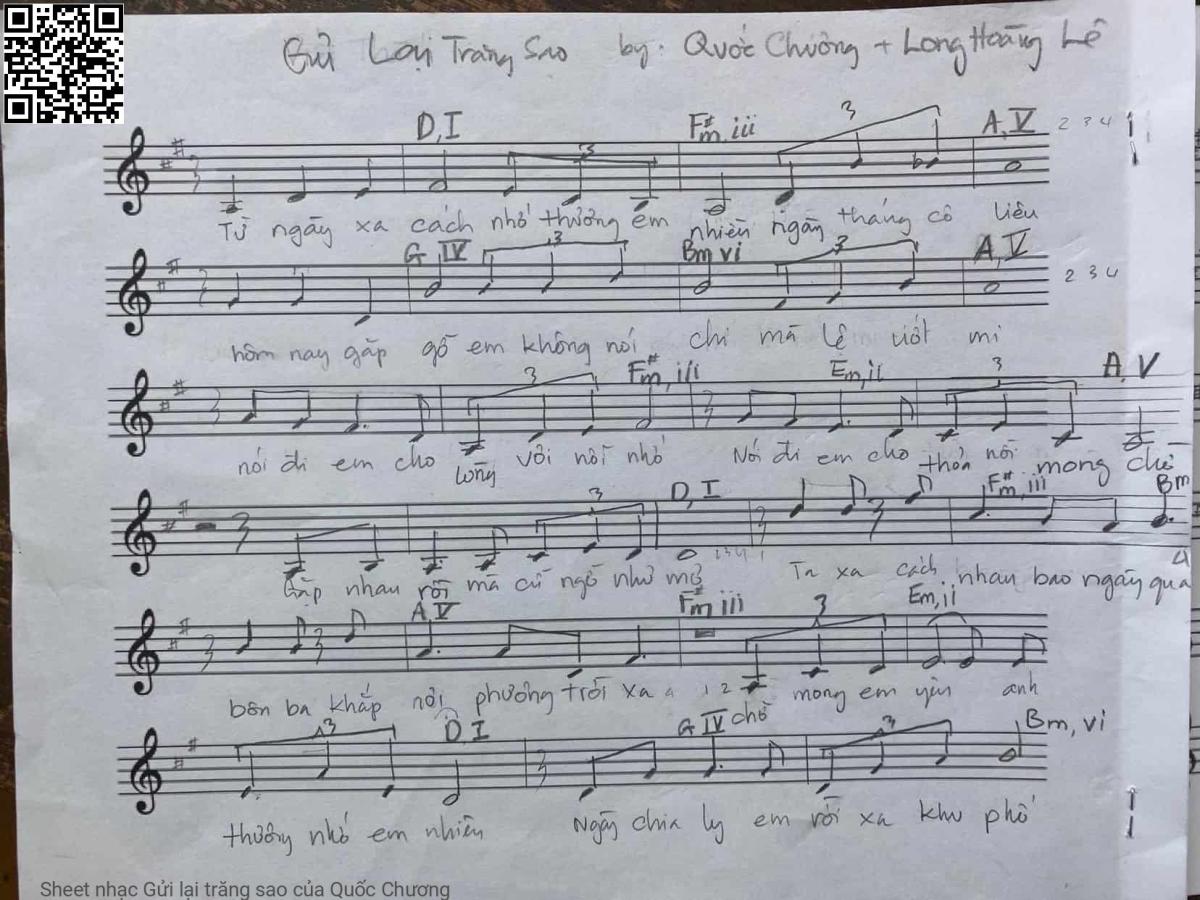 Gửi Lại Trăng Sao by: Quốc Chương + Long Hoàng Lê
D, I F#m, iii 3 A, V 2 3 4
3
Từ ngày xa cách nhớ thương em nhiều ngày tháng cô liêu
G IV 3 Bm vi 3 A, V 2 3 4
hôm nay gặp gỡ em không nói chi mà lệ ướt mi
3 F#m, iii Em, ii 3 A, V
nói đi em cho lòng vơi nỗi nhớ Nói đi em cho thỏa nỗi mong chờ
3 D, I F#m, iii Bm
Gặp nhau rồi mà cứ ngỡ như mơ Ta xa cách nhau bao ngày qua
A, V F#m iii 3 Em, ii
bôn ba khắp nơi phương trời xa 1 2 chờ mong em yêu anh
3 D, I G IV 3 Bm, vi
thương nhớ em nhiều Ngày chia ly em rời xa khu phố
Sheet nhạc Gửi lại trăng sao của Quốc Chương